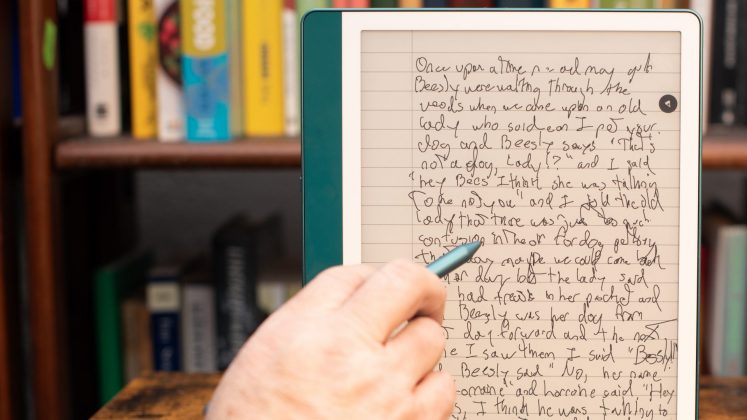 FOOD
Once upon a time
Beesly were walking through the
woods when we came upon an old
lady who said can I pet your
dog and Beesly says "That's
not a dog, Lady!?" and I said
"hey Bees I think she was talking
to me not you" and I told the old
lady that there was just too much
confusion in the air for dog petting
day maybe we could come back
day but the lady said
had treats in her pocket and
Beesly was her dog from
day forward and the next
I saw them I said "Beesly!"
Beesly said "No, her name
Lorraine" and Lorraine said "Hey
I think he was talking to